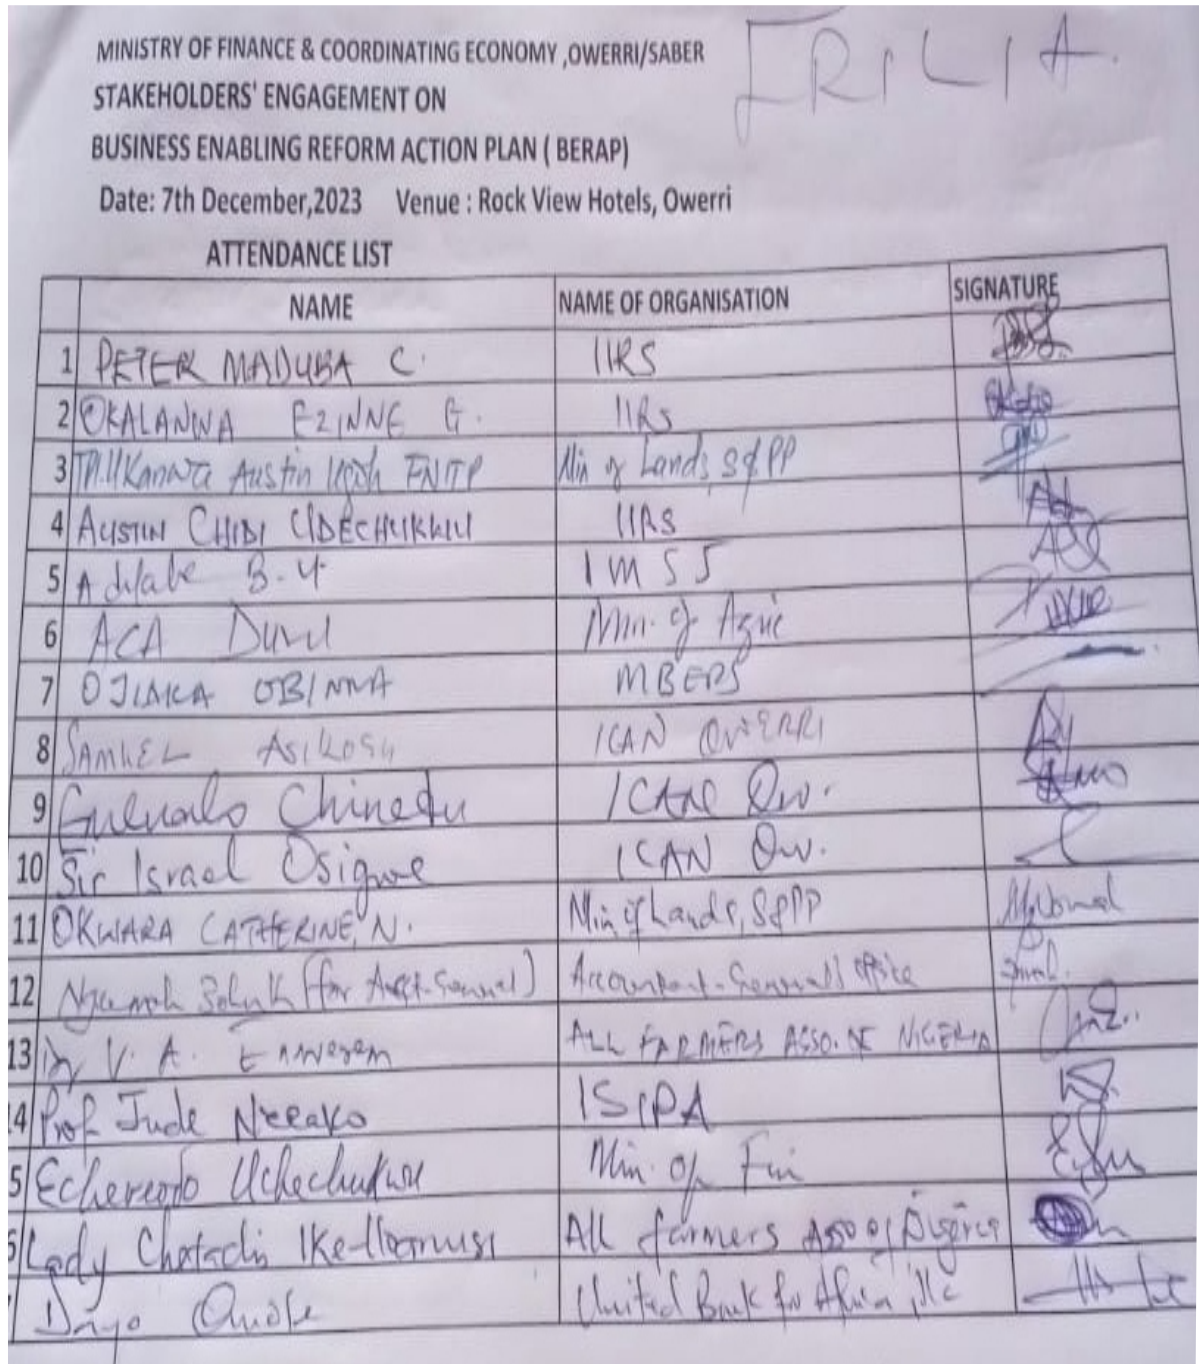 ERILIA.
MINISTRY OF FINANCE & COORDINATING ECONOMY ,OWERRI/SABER
STAKEHOLDERS' ENGAGEMENT ON
BUSINESS ENABLING REFORM ACTION PLAN ( BERAP)
Date: 7th December,2023 Venue : Rock View Hotels, Owerri
ATTENDANCE LIST
NAME NAME OF ORGANISATION SIGNATURE
1 PETER MADUBA C. IIRS
2 OKALANWA EZINNE G. IIRS
3 Austin FNITP Min of Lands, S&PP
4 AUSTIN CHIDI UDECHUKWU IIRS
5 B.U. IMSS
6 ACA Min. of Agric
7 OJIAKA OBINNA MBEPS
8 SAMUEL ICAN OWERRI
9 Chinedu ICAN Ow.
10 Sir Israel Osigwe ICAN Ow.
11 OKWARA CATHERINE, N. Min of Lands, S&PP
12 (for Acct-General) Accountant-General's office
13 Dr V. A. Enwerem ALL FARMERS ASSO. OF NIGERIA
4 Prof Jude ISIPA
5 Uchechukwu Min. of Fin
6 Lady All farmers Asso of Nigeria
Dayo United Bank for Africa, Plc